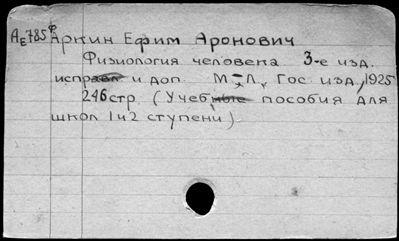 АЕ785Ф Аркин Ефим Аронович
Физиология человека 3-е изд.
исправл и доп. М-Л, Гос. изд, 1925
246 стр. (Учебные пособия для
школ 1 и 2 ступени)